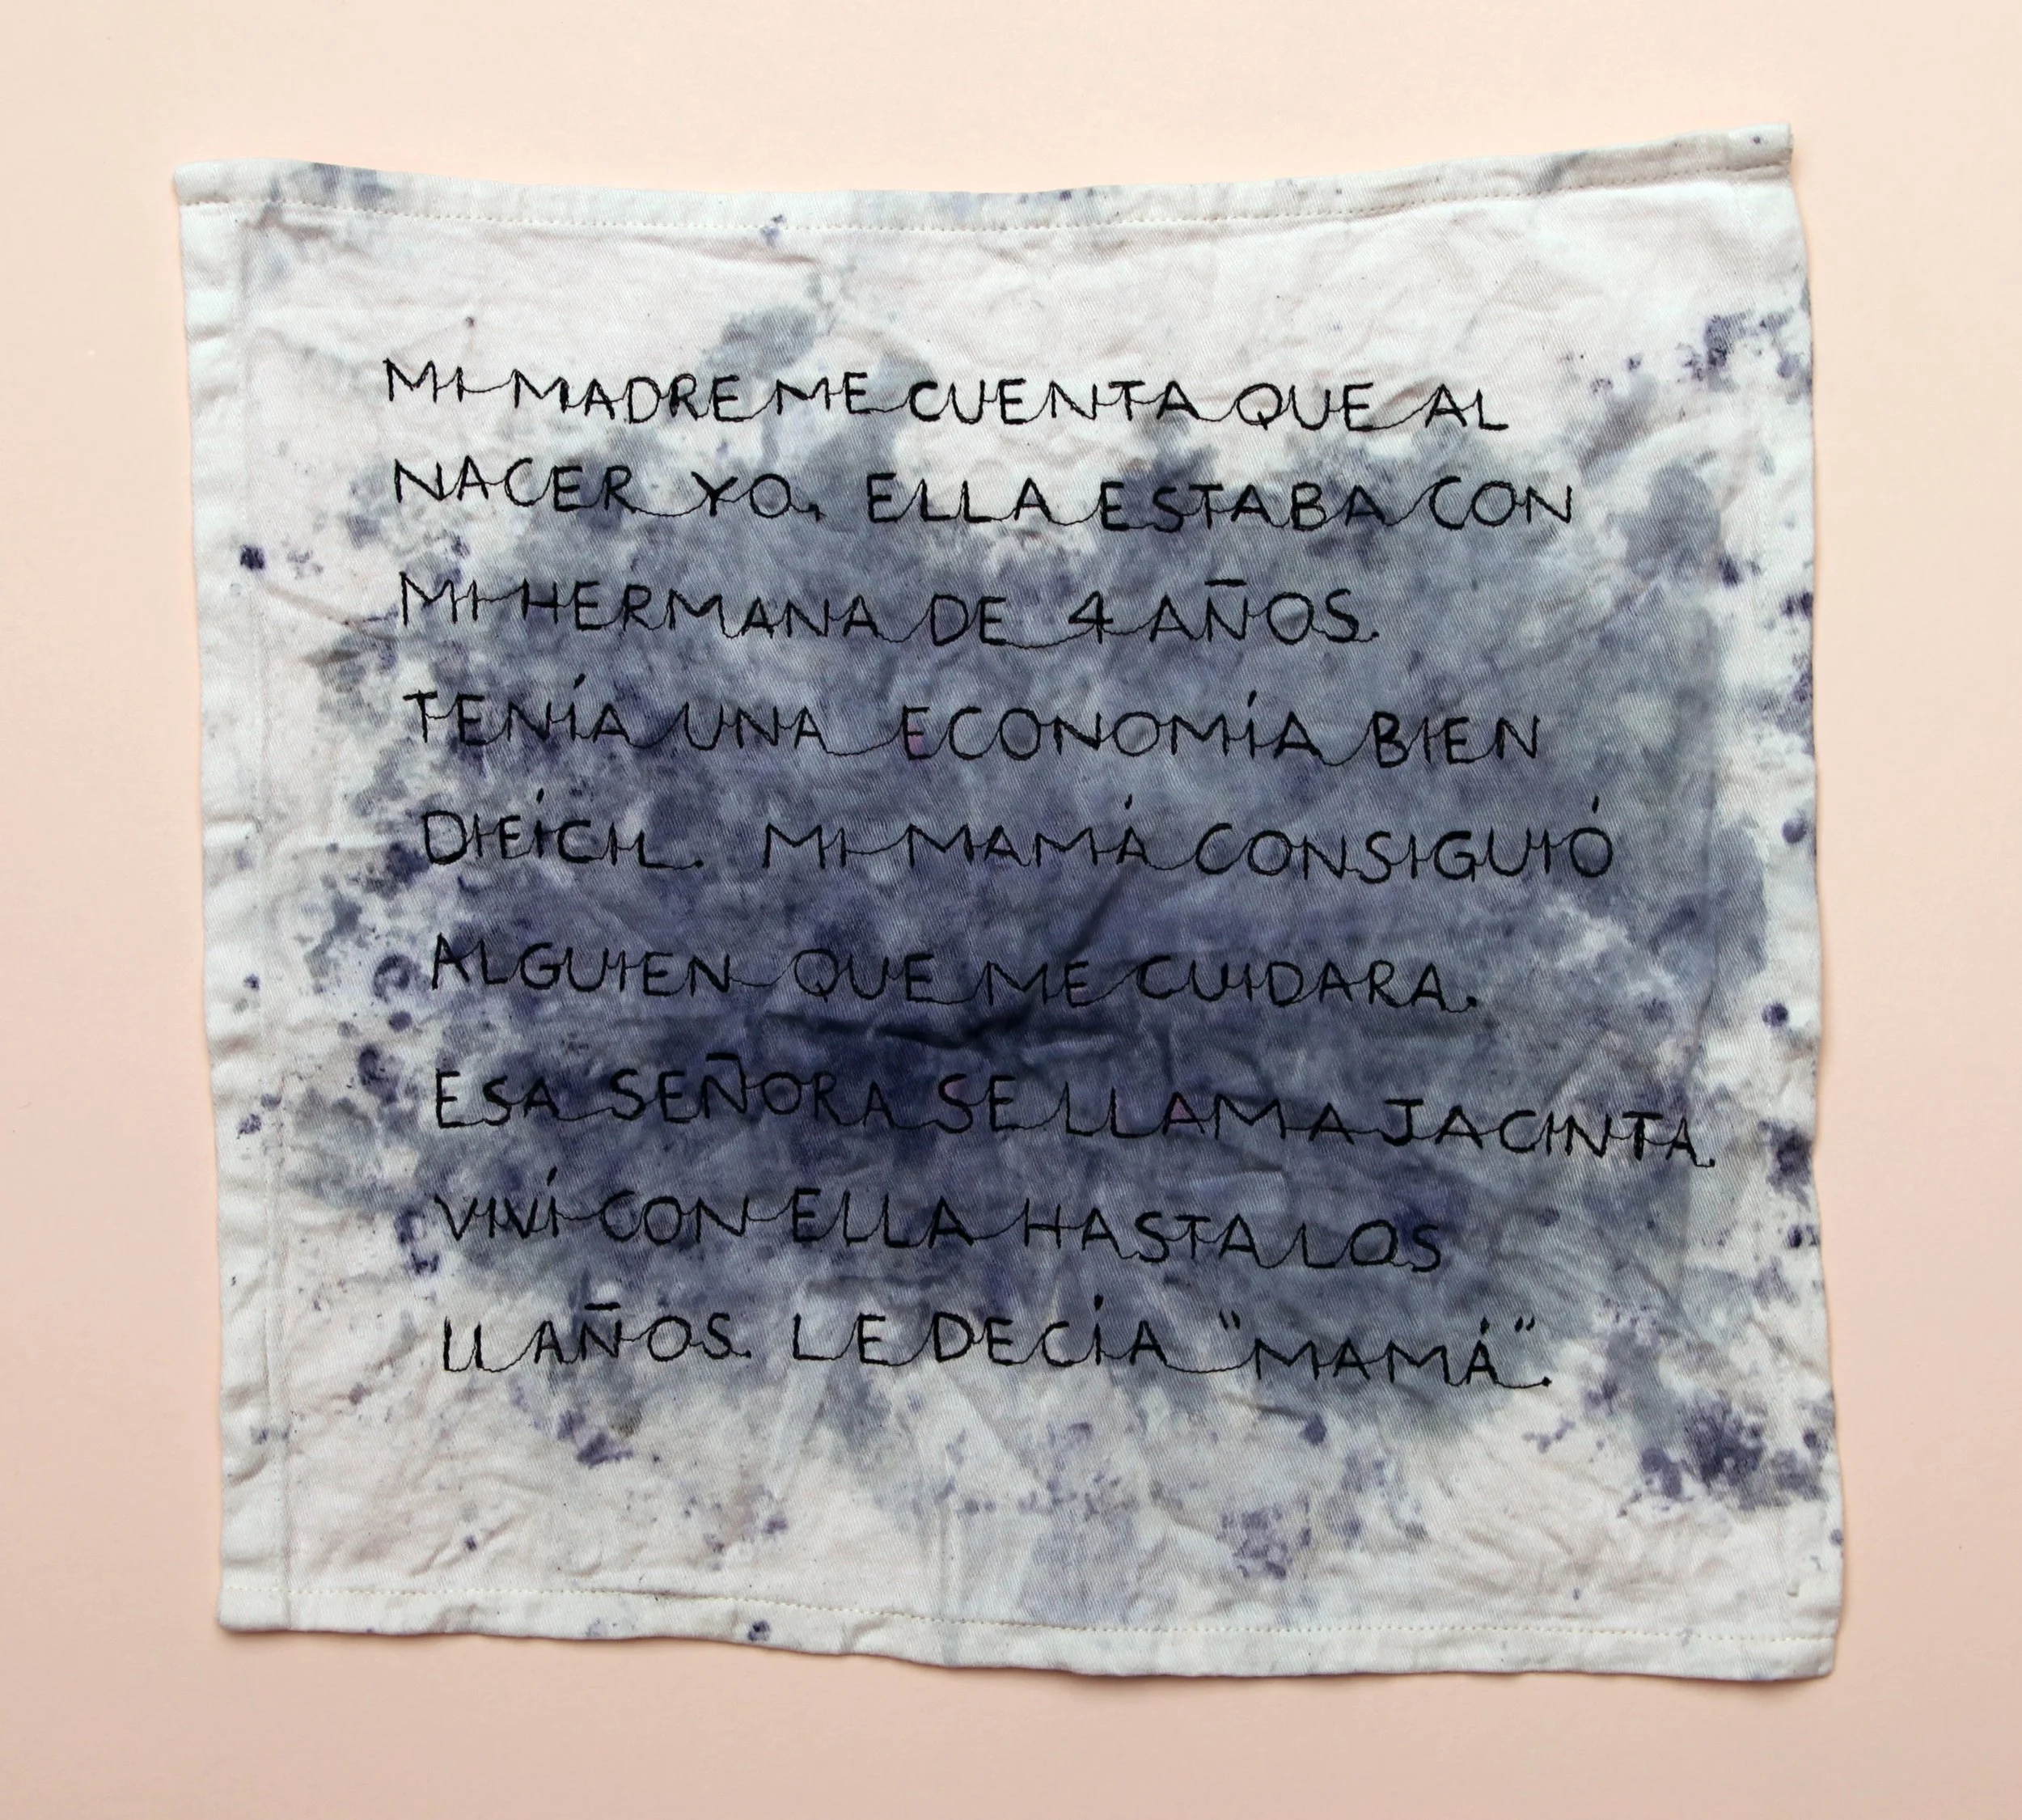 MI MADRE ME CUENTA QUE AL
NACER YO, ELLA ESTABA CON
MI HERMANA DE 4 AÑOS.
TENÍA UNA ECONOMÍA BIEN
DIFÍCIL. MI MAMÁ CONSIGUIÓ
ALGUIEN QUE ME CUIDARA.
ESA SEÑORA SE LLAMA JACINTA.
VIVÍ CON ELLA HASTA LOS
11 AÑOS. LE DECÍA "MAMÁ".